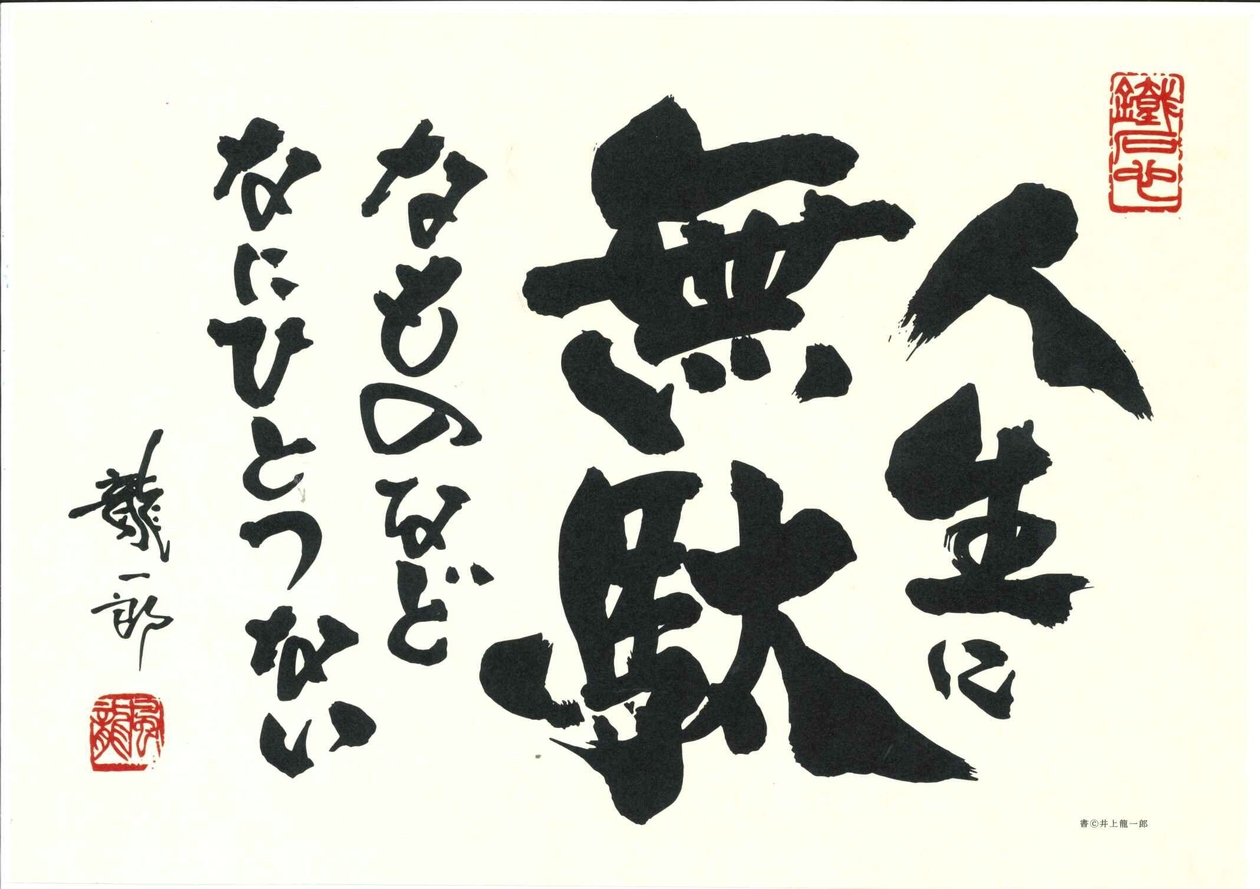 人生に
無駄
なものなど
なにひとつない
龍一郎
鐵石心
風龍
書©井上龍一郎